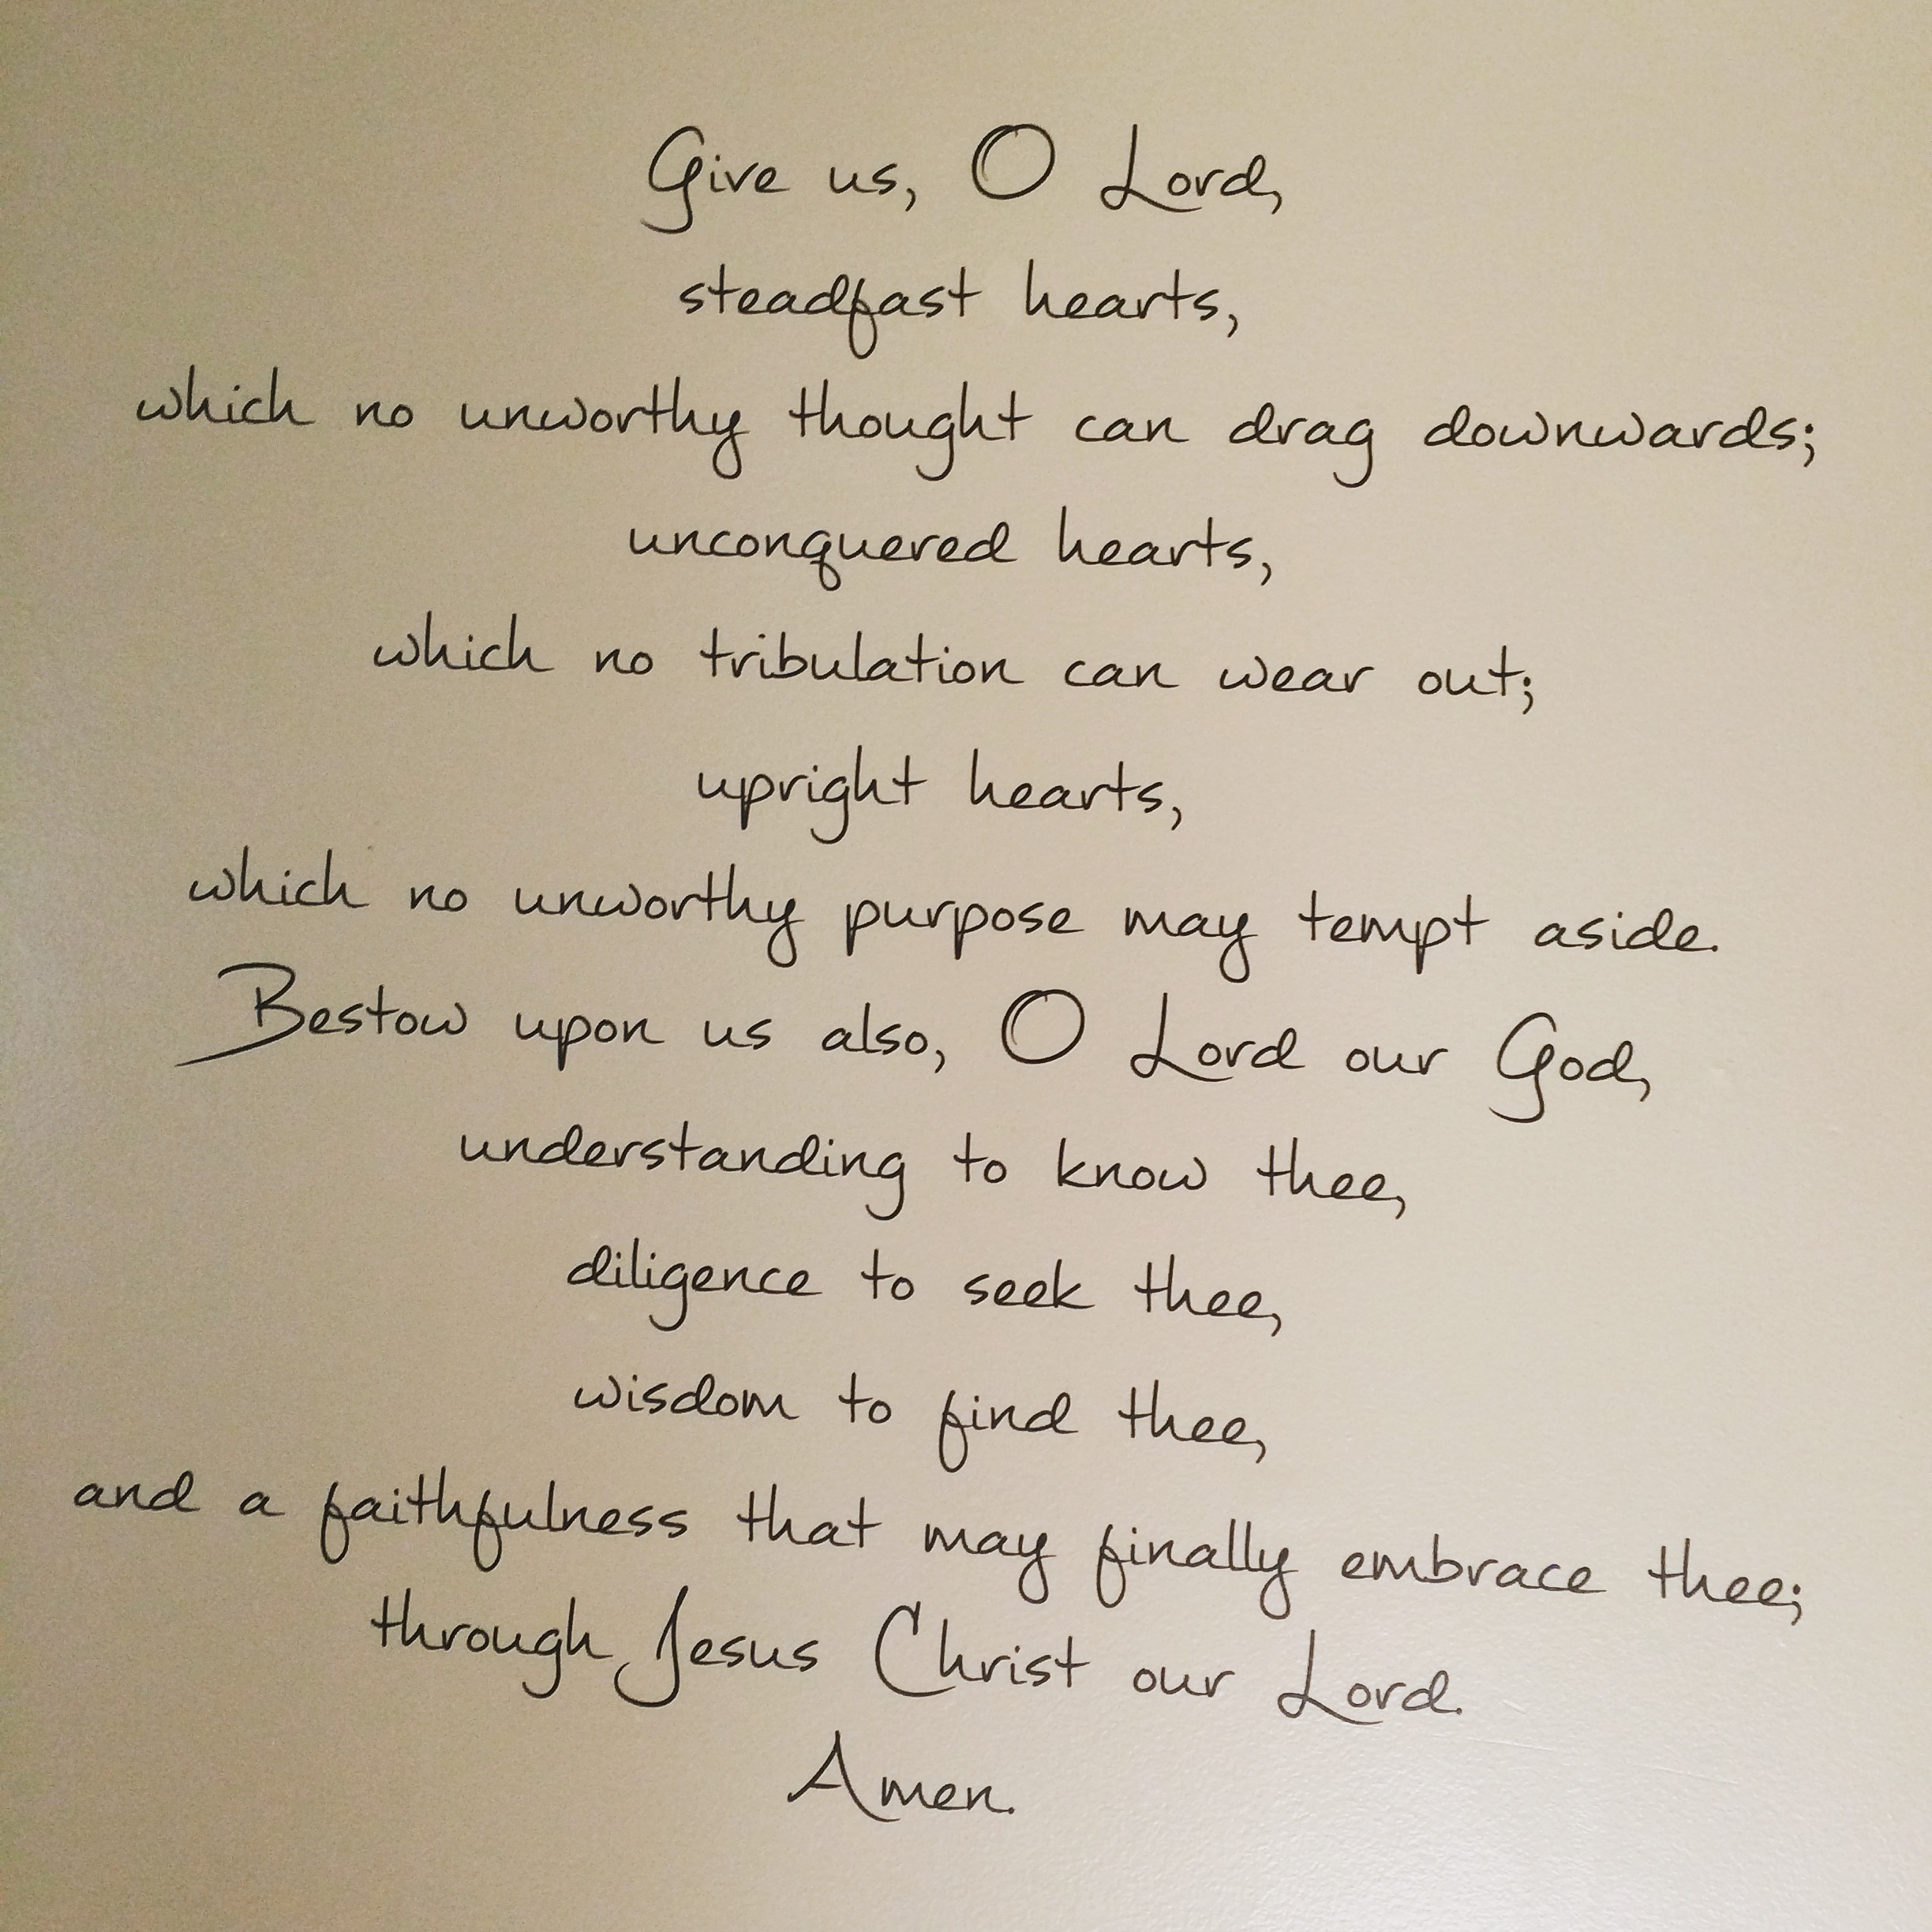 Give us, O Lord,
steadfast hearts,
which no unworthy thought can drag downwards;
unconquered hearts,
which no tribulation can wear out;
upright hearts,
which no unworthy purpose may tempt aside.
Bestow upon us also, O Lord our God,
understanding to know thee,
diligence to seek thee,
wisdom to find thee,
and a faithfulness that may finally embrace thee;
through Jesus Christ our Lord.
Amen.